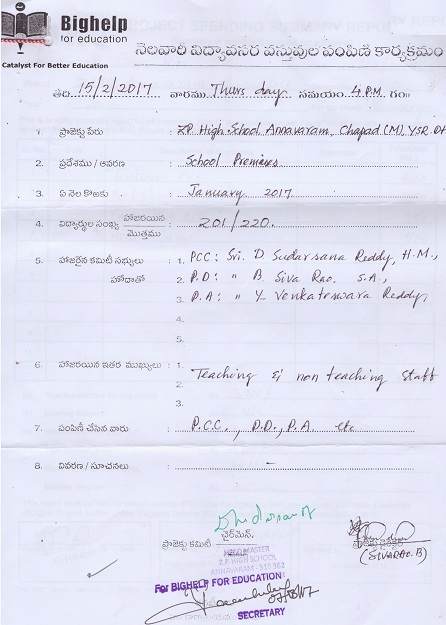 Bighelp
for education
Catalyst For Better Education
నెలవారి విద్యావసర వస్తువుల పంపిణి కార్యక్రమం
తేది 15/2/2017 వారము Thursday సమయం 4 P.M గం॥
1. ప్రాజెక్టు పేరు : Z.P. High School Annavaram, Chapad (M), YSR. Dt
2. ప్రదేశము / ఆవరణ : School Premises
3. ఏ నెల కొఱకు : January 2017
4. విద్యార్థుల సంఖ్య హాజరయిన / మొత్తము : 201/220.
5. హాజరైన కమిటీ సభ్యులు : 1. PCC: Sri. D Sudarsana Reddy, H.M.,
హోదాతో 2. P.D: " B Siva Rao. S.A.,
3. P.A: " Y. Venkateswara Reddy,
4.
5.
6. హాజరయిన ఇతర ముఖ్యులు : 1.
2. Teaching & non teaching staff
3.
7. పంపిణీ చేసిన వారు : P.C.C., P.D., P.A. etc
8. వివరణ / సూచనలు :
ప్రాజెక్టు కమిటీ చైర్‌మెన్,
(SIVARAO. B)
HEAD MASTER
Z.P. HIGH SCHOOL
ANNAVARAM - 516 362
For BIGHELP FOR EDUCATION
SECRETARY